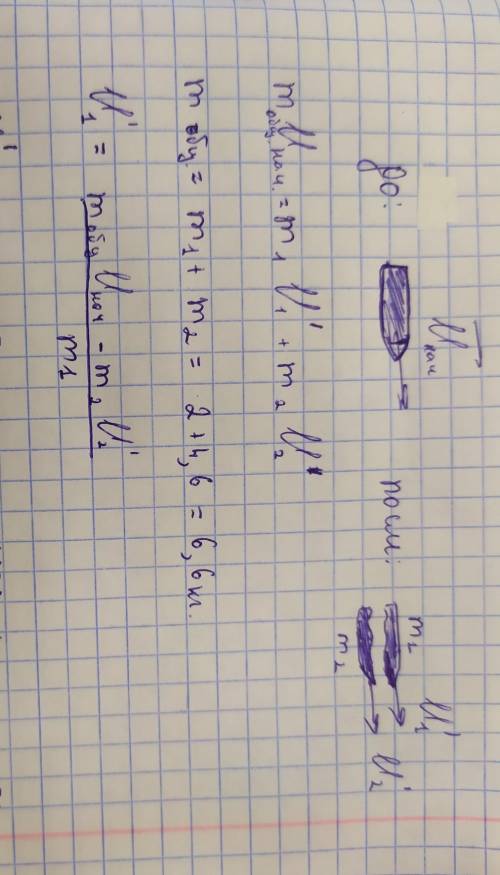 До: U⃗нач после: m₁ U₁' m₂ U₂'
m общ. U нач. = m₁ U₁' + m₂ U₂'
m общ. = m₁ + m₂ = 2 + 4,6 = 6,6 кг.
U₁' = (m общ U нач - m₂ U₂') / m₁